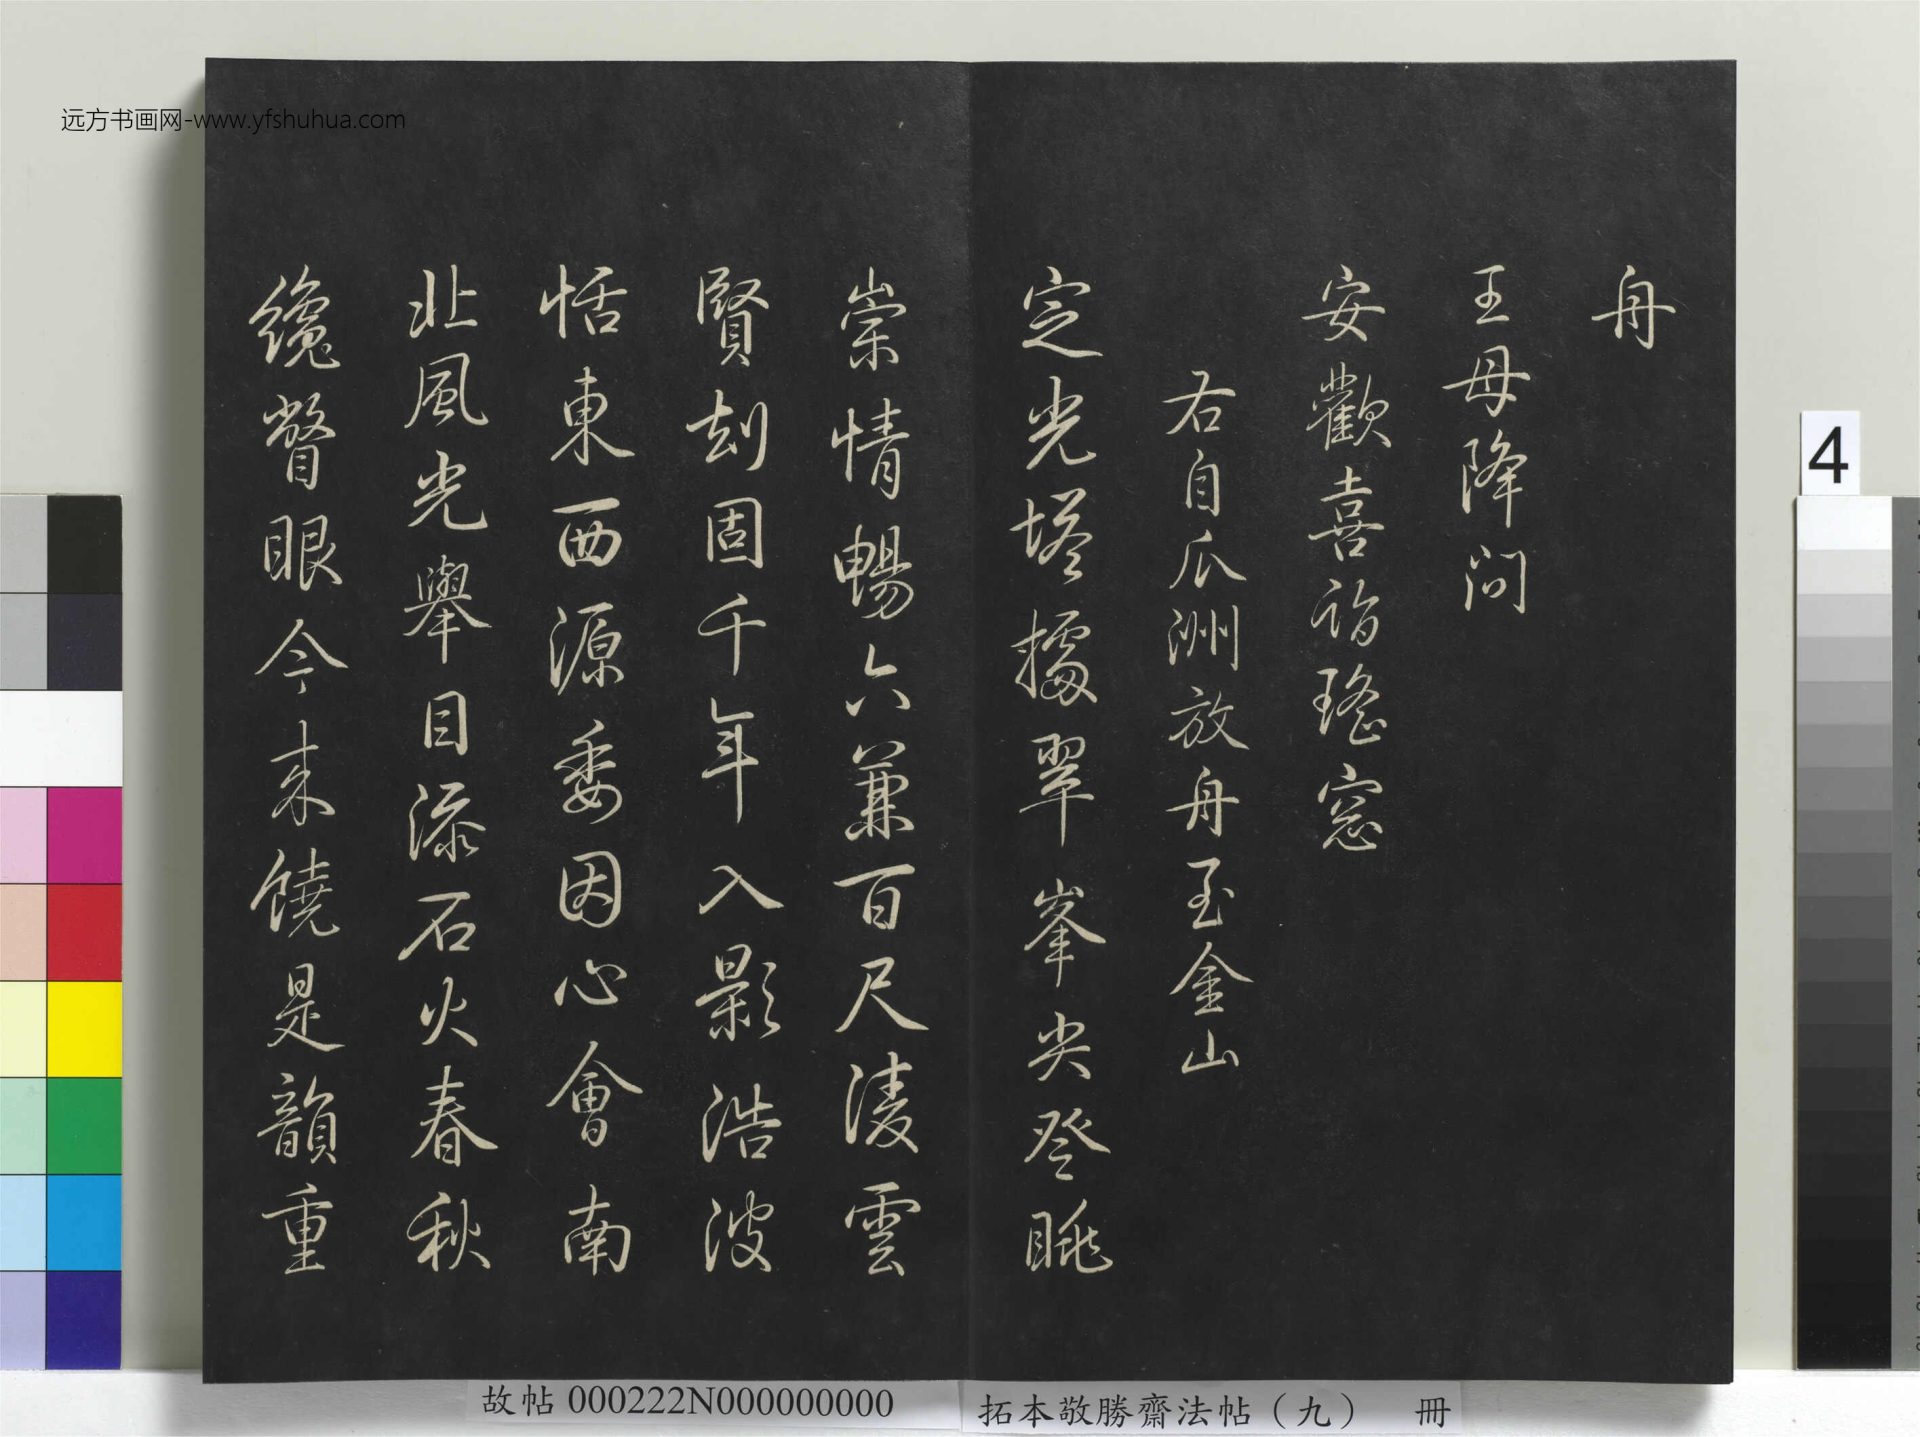 远方书画网-www.yfshuhua.com
舟
王母降問
安歡喜詣瑤窓
右自瓜洲放舟至金山
定光塔據翠峯尖登眺
崇情暢六兼百尺淩雲
賢劫固千年入影浩波
恬東西源委因心會南
北風光舉目添石火春秋
纔瞥眼今来饒是韻重
4
故帖 000222N000000000
拓本敬勝齋法帖（九） 冊